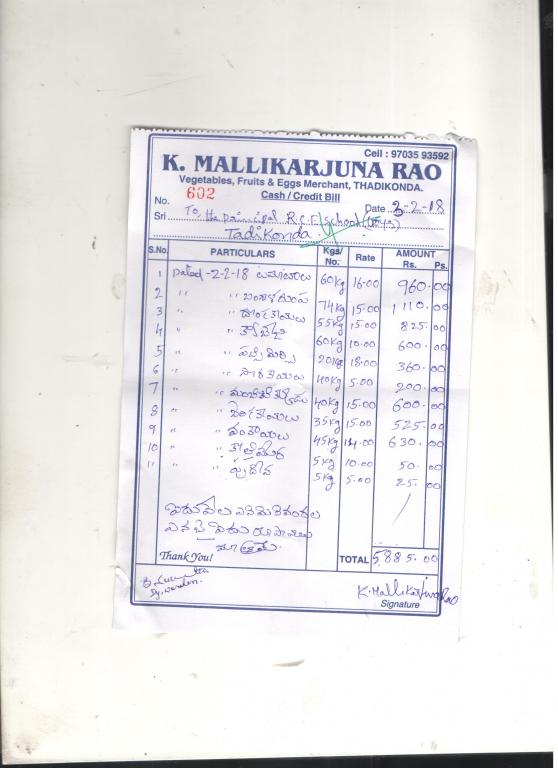 Cell : 97035 93592
K. MALLIKARJUNA RAO
Vegetables, Fruits & Eggs Merchant, THADIKONDA.
Cash / Credit Bill
No. 602 Date 2-2-18
Sri To, the principal R.C.F/School
Tadikonda.
S.No. PARTICULARS Kgs/No. Rate AMOUNT Rs. Ps.
1 Dated -2-2-18 టమాటాలు 60kg 16.00 960.00
2 " " బంగాళదుంప 74kg 15.00 1110.00
3 " " దొండకాయలు 55kg 15.00 825.00
4 " " క్యాబేజి 60kg 10.00 600.00
5 " " పచ్చిమిర్చి 20kg 18.00 360.00
6 " " 40kg 5.00 200.00
7 " " 40kg 15.00 600.00
8 " " 35kg 15.00 525.00
9 " " వంకాయలు 45kg 14.00 630.00
10 " " కొత్తిమీర 5kg 10.00 50.00
11 " " పుదీన 5kg 5.00 25.00
ఐదువేల ఎనిమిదివందల
ఎనభై ఐదు రూపాయలు
మాత్రమే.
Thank You! TOTAL 5,885.00
Dy. Warden. K. Mallikarjuna Rao
Signature